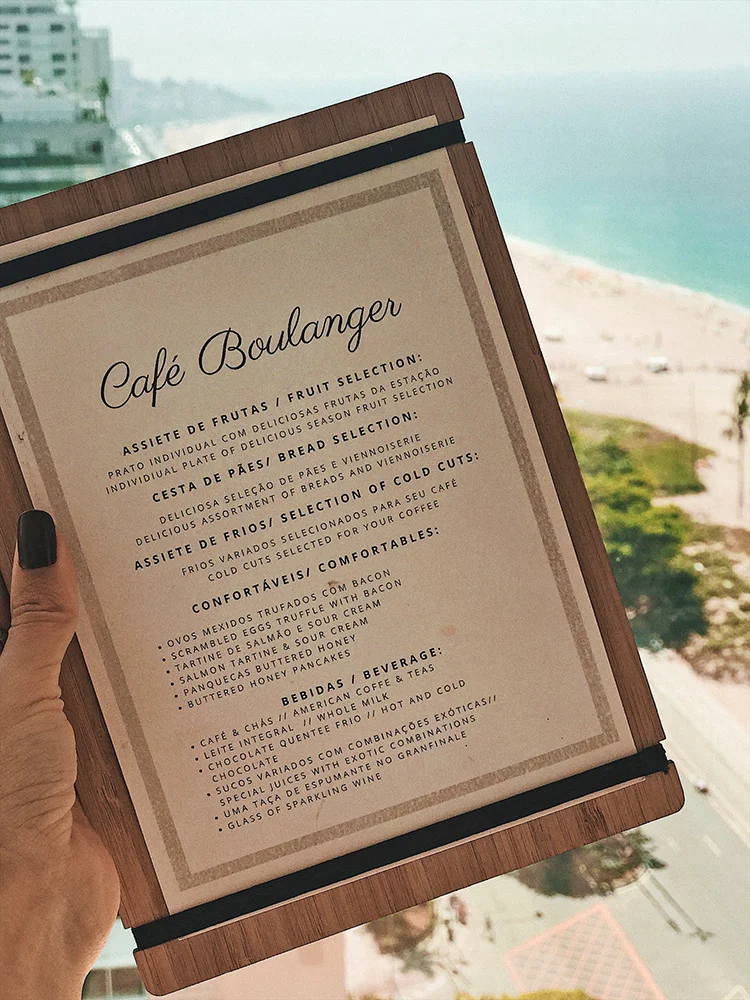 Café Boulanger
ASSIETE DE FRUTAS / FRUIT SELECTION:
PRATO INDIVIDUAL COM DELICIOSAS FRUTAS DA ESTAÇÃO
INDIVIDUAL PLATE OF DELICIOUS SEASON FRUIT SELECTION
CESTA DE PÃES/ BREAD SELECTION:
DELICIOSA SELEÇÃO DE PÃES E VIENNOISERIE
DELICIOUS ASSORTMENT OF BREADS AND VIENNOISERIE
ASSIETE DE FRIOS/ SELECTION OF COLD CUTS:
FRIOS VARIADOS SELECIONADOS PARA SEU CAFÉ
COLD CUTS SELECTED FOR YOUR COFFEE
CONFORTÁVEIS/ COMFORTABLES:
• OVOS MEXIDOS TRUFADOS COM BACON
• SCRAMBLED EGGS TRUFFLE WITH BACON
• TARTINE DE SALMÃO E SOUR CREAM
• SALMON TARTINE & SOUR CREAM
• PANQUECAS BUTTERED HONEY
• BUTTERED HONEY PANCAKES
BEBIDAS / BEVERAGE:
• CAFÉ & CHÁS // AMERICAN COFFE & TEAS
• LEITE INTEGRAL // WHOLE MILK
• CHOCOLATE QUENTEE FRIO // HOT AND COLD
CHOCOLATE
• SUCOS VARIADOS COM COMBINAÇÕES EXÓTICAS//
SPECIAL JUICES WITH EXOTIC COMBINATIONS
• UMA TAÇA DE ESPUMANTE NO GRANFINALE
• GLASS OF SPARKLING WINE